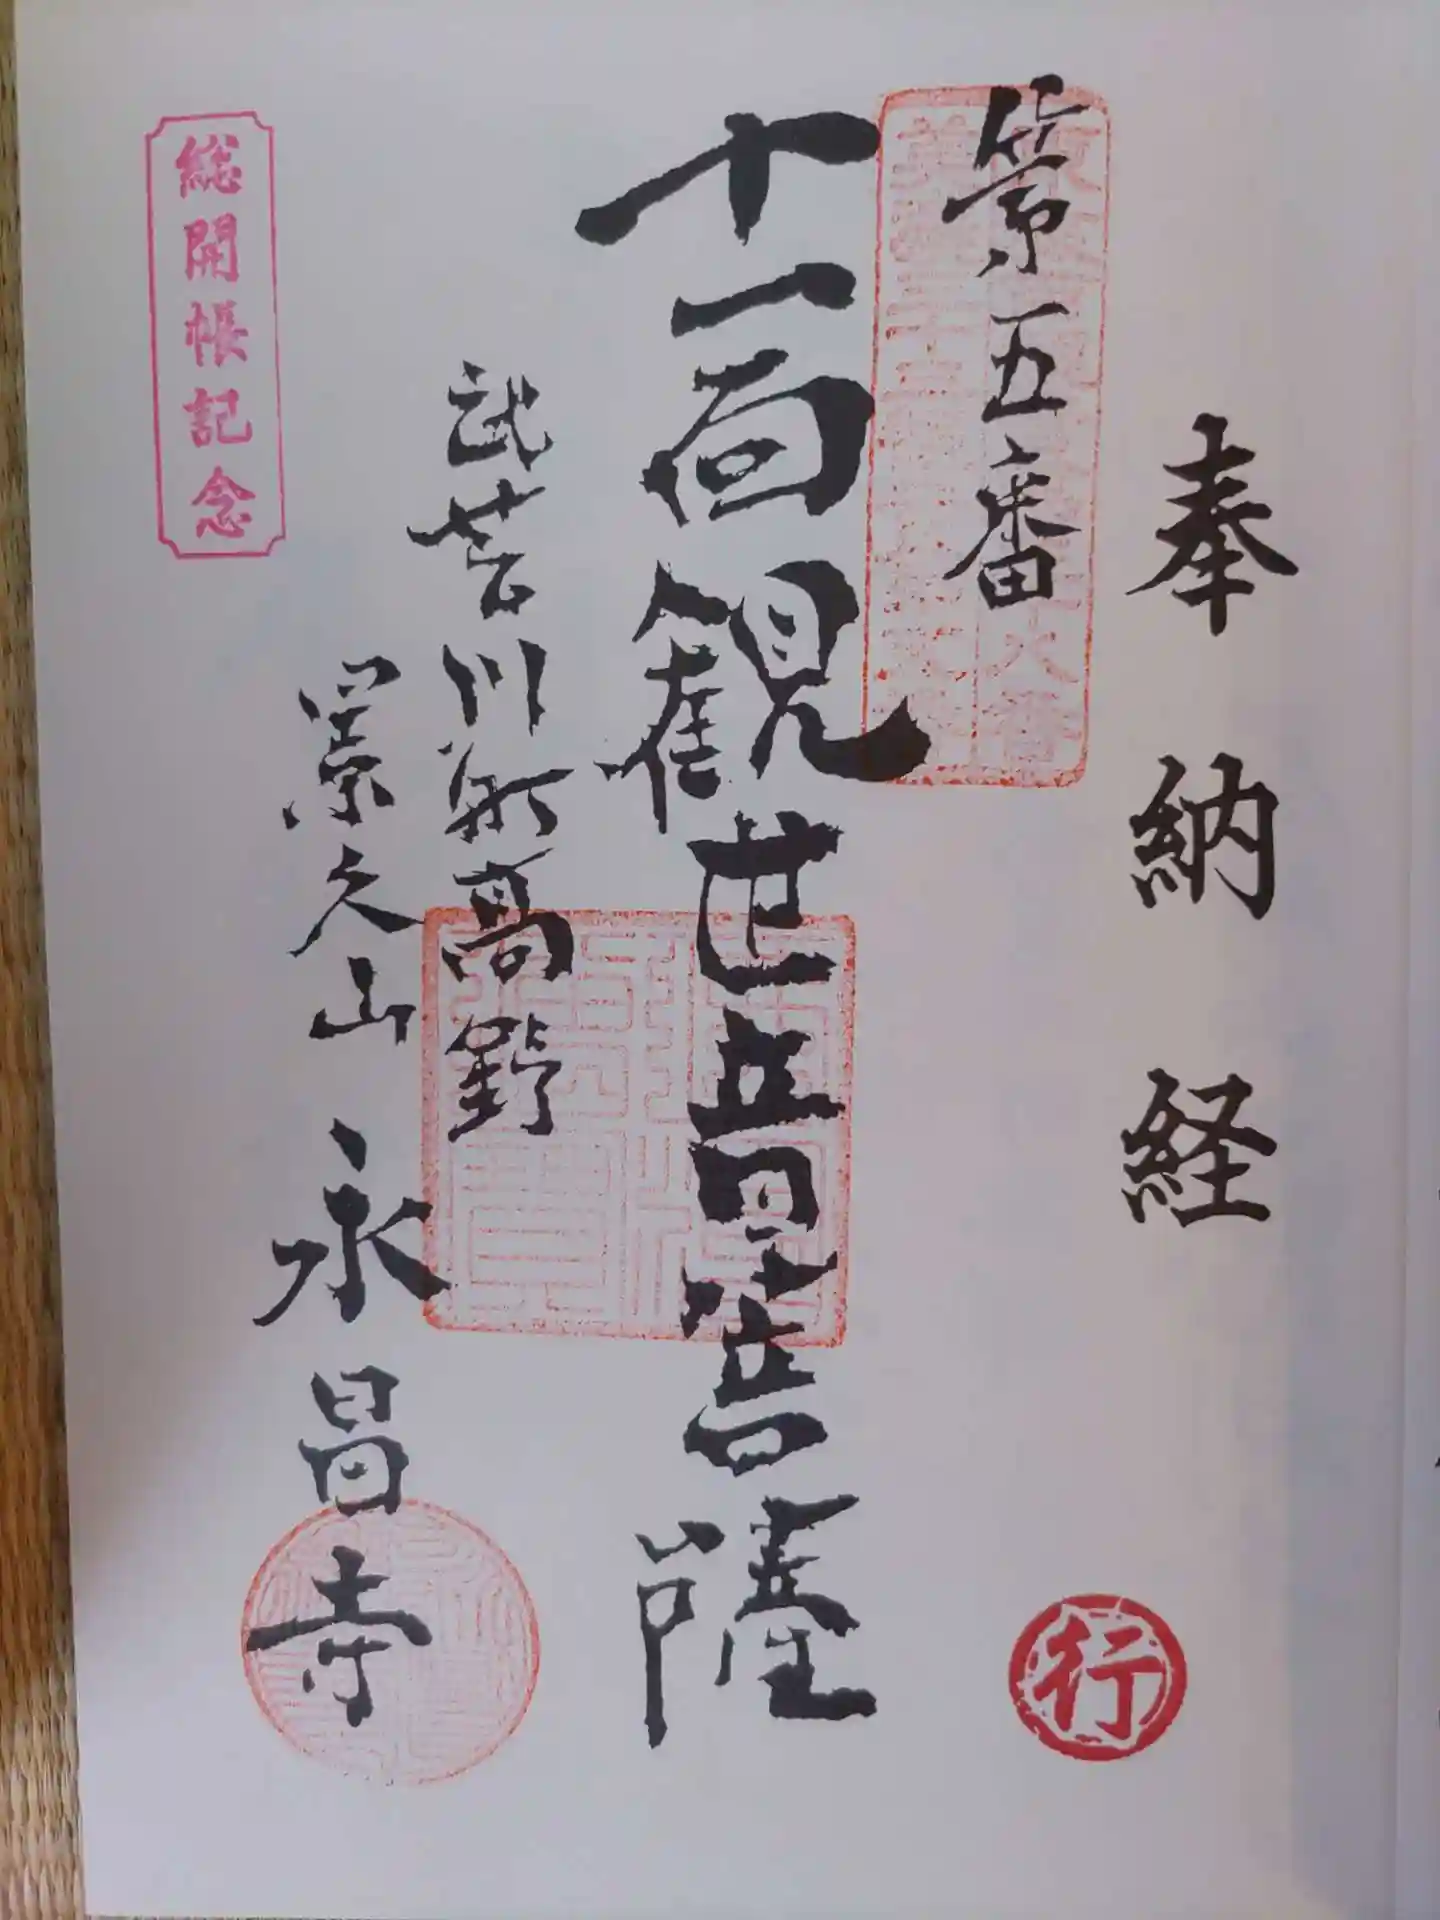 奉納経
第五番
十一面観世音菩薩
武芸川町高野
崇久山 永昌寺
総開帳記念
行